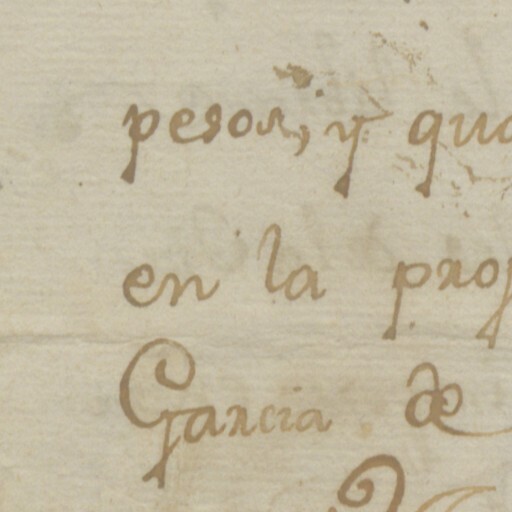 pesos, y qua
en la prop
Garcia de